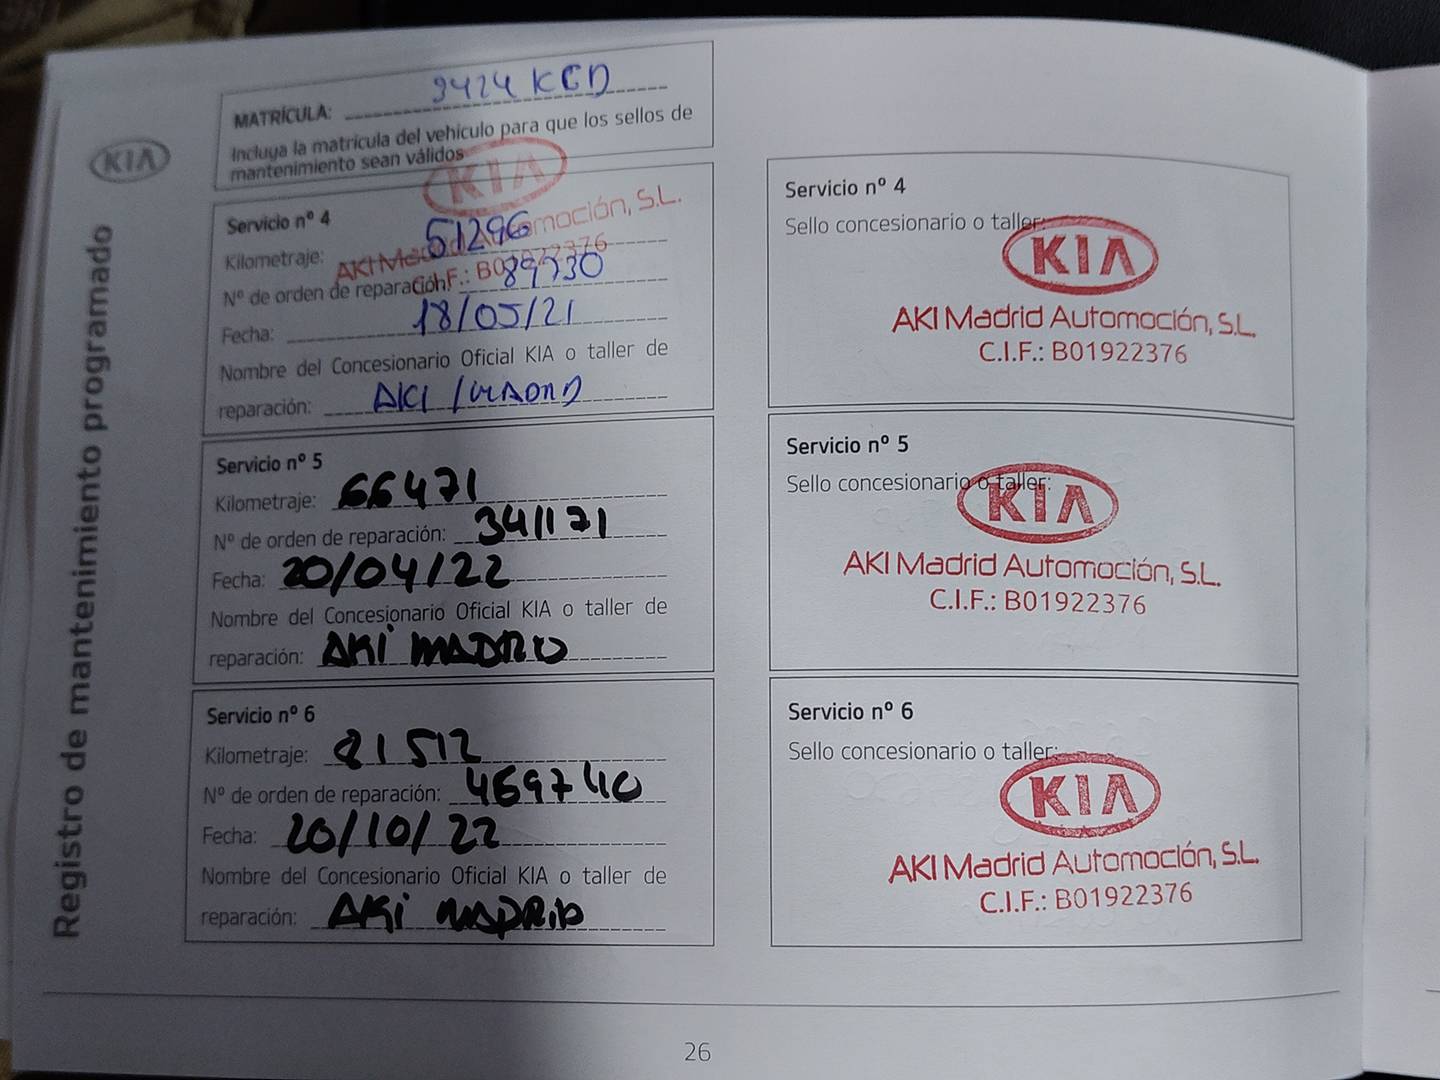 MATRÍCULA: 9424 KCD
Incluya la matrícula del vehículo para que los sellos de
mantenimiento sean válidos
KIA
Registro de mantenimiento programado
KIA
AKI Madrid Automoción, S.L.
C.I.F.: B01922376
Servicio nº 4
Kilometraje: 51296
Nº de orden de reparación: 89730
Fecha: 18/05/21
Nombre del Concesionario Oficial KIA o taller de
reparación: AKI MADRID
Servicio nº 5
Kilometraje: 66471
Nº de orden de reparación: 341171
Fecha: 20/04/22
Nombre del Concesionario Oficial KIA o taller de
reparación: AKI MADRID
Servicio nº 6
Kilometraje: 81512
Nº de orden de reparación: 469740
Fecha: 20/10/22
Nombre del Concesionario Oficial KIA o taller de
reparación: AKI MADRID
Servicio nº 4
Sello concesionario o taller:
KIA
AKI Madrid Automoción, S.L.
C.I.F.: B01922376
Servicio nº 5
Sello concesionario o taller:
KIA
AKI Madrid Automoción, S.L.
C.I.F.: B01922376
Servicio nº 6
Sello concesionario o taller:
KIA
AKI Madrid Automoción, S.L.
C.I.F.: B01922376
26